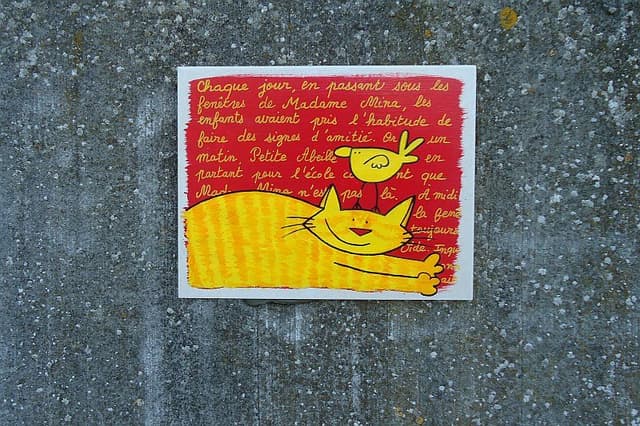 Chaque jour, en passant sous les
fenêtres de Madame Mina, les
enfants avaient pris l'habitude de
faire des signes d'amitié. Or un
matin, Petite Abeille en
partant pour l'école que
Mina n'est pas là. A midi
la
toujours
vide.